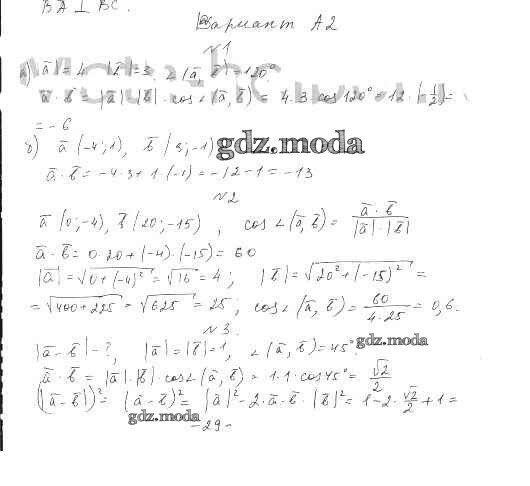 BA ⊥ BC.
Вариант A2
N1
а) |a̅| = 4 |b̅| = 3 ∠(a̅, b̅) = 120°
a̅ · b̅ = |a̅| · |b̅| · cos∠(a̅, b̅) = 4 · 3 cos120° = 12 · (-1/2) =
= -6
б) a̅ (-4; 1), b̅ (3; -1) gdz.moda
a̅ · b̅ = -4·3 + 1·(-1) = -12 - 1 = -13
N2
a̅ (0; -4), b̅ (20; -15), cos∠(a̅, b̅) = a̅ · b̅ / |a̅| · |b̅|
a̅ · b̅ = 0·20 + (-4)·(-15) = 60
|a̅| = √0 + (-4)² = √16 = 4; |b̅| = √20² + (-15)² =
= √400 + 225 = √625 = 25; cos∠(a̅, b̅) = 60/4·25 = 0,6.
N3.
|a̅ - b̅| - ?, |a̅| = |b̅| = 1, ∠(a̅, b̅) = 45° gdz.moda
a̅ · b̅ = |a̅| · |b̅| · cos∠(a̅, b̅) = 1·1·cos45° = √2/2
(|a̅ - b̅|)² = (a̅ - b̅)² = |a̅|² - 2·a̅·b̅·|b̅|² = 1 - 2·√2/2 + 1 =
gdz.moda
-29-